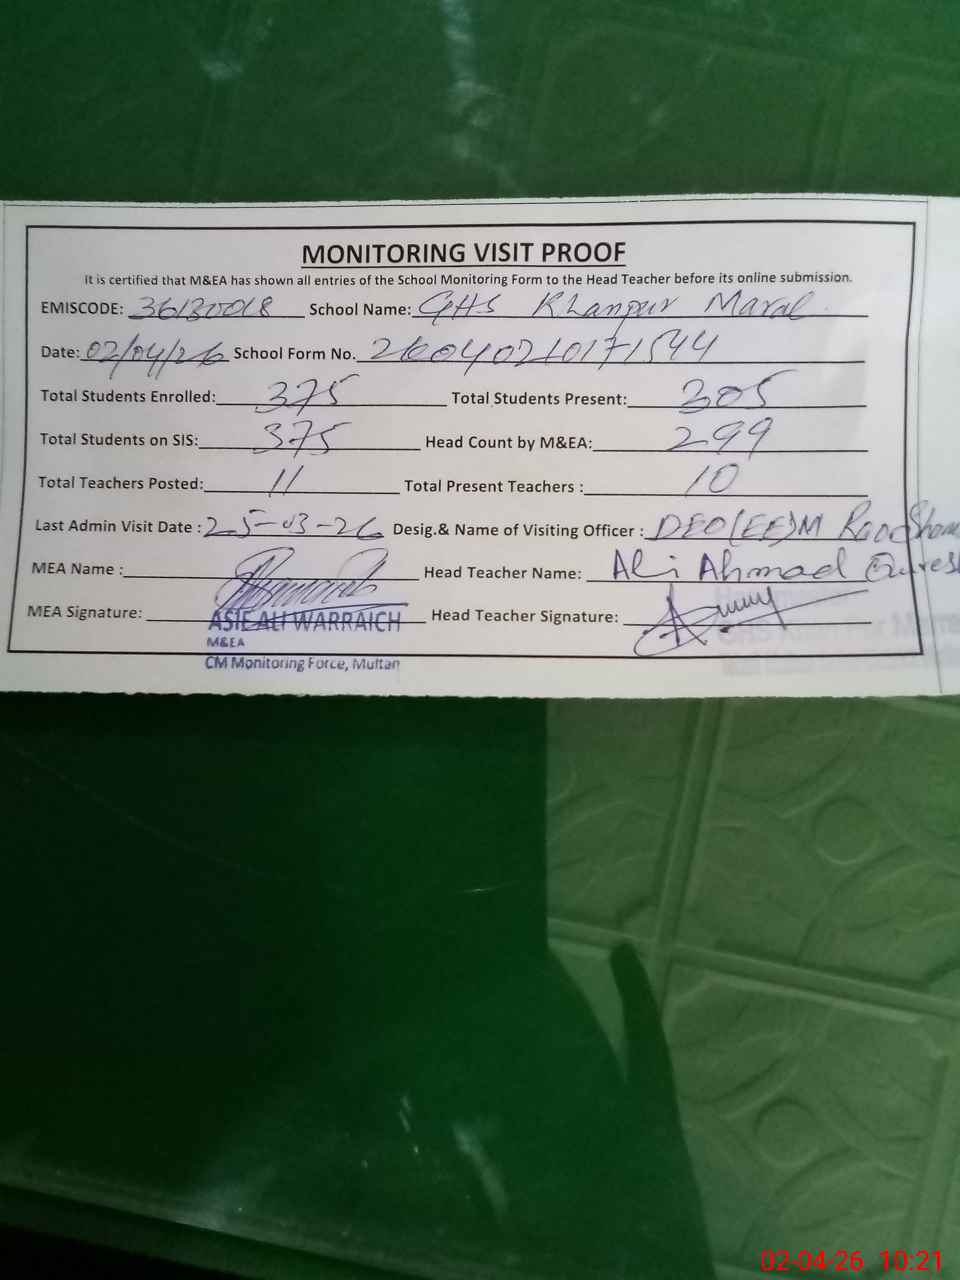 MONITORING VISIT PROOF
It is certified that M&EA has shown all entries of the School Monitoring Form to the Head Teacher before its online submission.
EMISCODE: 36130018 School Name: GHS Khanpur Maral
Date: 02/04/26 School Form No. 26040210171544
Total Students Enrolled: 375 Total Students Present: 305
Total Students on SIS: 375 Head Count by M&EA: 299
Total Teachers Posted: 11 Total Present Teachers : 10
Last Admin Visit Date : 25-03-26 Desig.& Name of Visiting Officer : DEO(EE)M Rao
MEA Name : Head Teacher Name: Ali Ahmad
MEA Signature: Head Teacher Signature:
ASIF ALI WARRAICH
M&EA
CM Monitoring Force, Multan
02-04-26 10:21